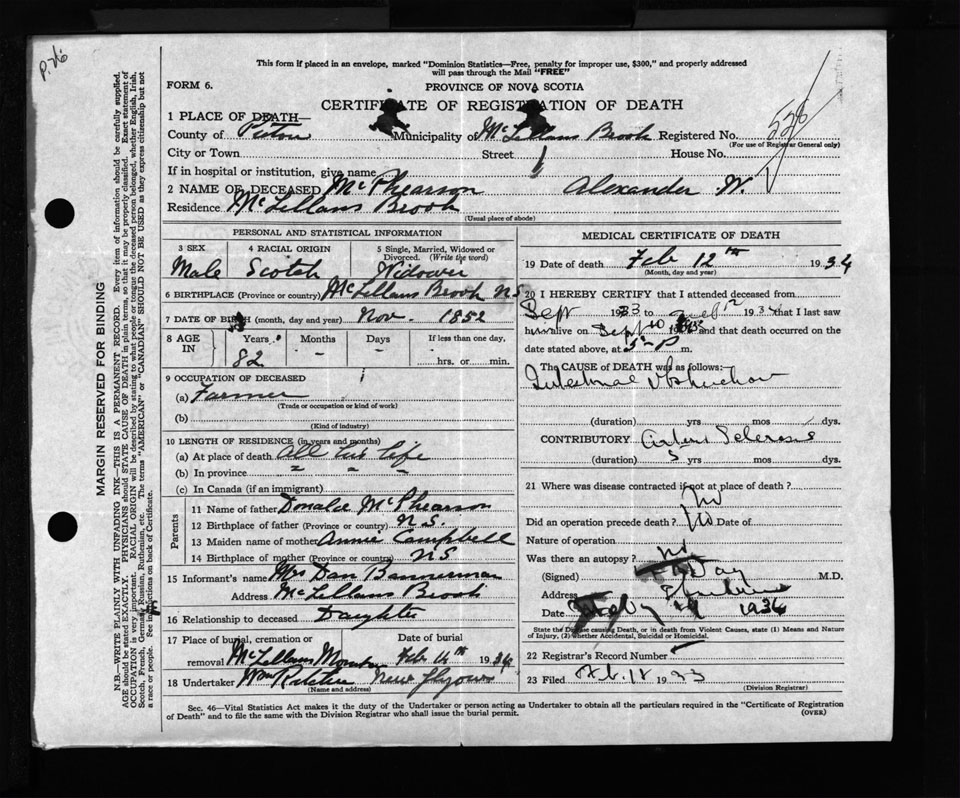 P. 26
This form if placed in an envelope, marked "Dominion Statistics—Free, penalty for improper use, $300," and properly addressed
will pass through the Mail "FREE"
FORM 6.
PROVINCE OF NOVA SCOTIA
CERTIFICATE OF REGISTRATION OF DEATH
1 PLACE OF DEATH—
County of Pictou Municipality of McLellans Brook Registered No. 526
(For use of Registrar General only)
City or Town Street House No.
If in hospital or institution, give name
2 NAME OF DECEASED McPhearson Alexander W.
Residence McLellans Brook
(Usual place of abode)
PERSONAL AND STATISTICAL INFORMATION
3 SEX 4 RACIAL ORIGIN 5 Single, Married, Widowed or Divorced. (Write the word)
Male Scotch Widower
6 BIRTHPLACE (Province or country) McLellans Brook N S
7 DATE OF BIRTH (month, day and year) Nov. 1852
8 AGE IN Years Months Days If less than one day,
82 - - hrs. or min.
9 OCCUPATION OF DECEASED
(a) Farmer
(Trade or occupation or kind of work)
(b)
(Kind of industry)
10 LENGTH OF RESIDENCE (in years and months)
(a) At place of death All his life
(b) In province " " "
(c) In Canada (if an immigrant)
Parents
11 Name of father Donald McPhearson
12 Birthplace of father (Province or country) N.S.
13 Maiden name of mother Annie Campbell
14 Birthplace of mother (Province or country) N S
15 Informant's name Mrs Dan Bannerman
Address McLellans Brook
16 Relationship to deceased Daughter
17 Place of burial, cremation or removal McLellans Date of burial Feb 14th 1934
18 Undertaker Wm New Glasgow
(Name and address)
MEDICAL CERTIFICATE OF DEATH
19 Date of death Feb 12th 1934
(Month, day and year)
20 I HEREBY CERTIFY that I attended deceased from
Sept 1933 to Feb 12 1934 that I last saw
him alive on Sept 10 and that death occurred on
date stated above, at 5 P m.
The CAUSE OF DEATH was as follows:
Intestinal Obstruction
(duration) yrs mos dys.
CONTRIBUTORY Arterio Sclerosis
(duration) 5 yrs mos dys.
21 Where was disease contracted if not at place of death?
Did an operation precede death? No Date of
Nature of operation
Was there an autopsy? No
(Signed) Day M.D.
Address
Date 1934
State the Disease causing Death, or in death from Violent Causes, state (1) Means and Nature
of Injury, (2) whether Accidental, Suicidal or Homicidal.
22 Registrar's Record Number
23 Filed Feb. 18 1933
(Division Registrar)
Sec. 46—Vital Statistics Act makes it the duty of the Undertaker or person acting as Undertaker to obtain all the particulars required in the "Certificate of Registration
of Death" and to file the same with the Division Registrar who shall issue the burial permit.
(OVER)
MARGIN RESERVED FOR BINDING
N.B.—WRITE PLAINLY WITH UNFADING INK—THIS IS A PERMANENT RECORD. Every item of information should be carefully supplied.
AGE should be stated EXACTLY. PHYSICIANS should STATE CAUSE OF DEATH in plain terms, so that it may be properly classified. Exact statement of
OCCUPATION is very important. RACIAL ORIGIN will be described by stating to what people or tongue the deceased person belonged, whether English, Irish,
Scotch, French, German, Russian, Ruthenian, etc. The terms "AMERICAN" or "CANADIAN" SHOULD NOT BE USED as they express citizenship but not
a race or people. See instructions on back of Certificate.